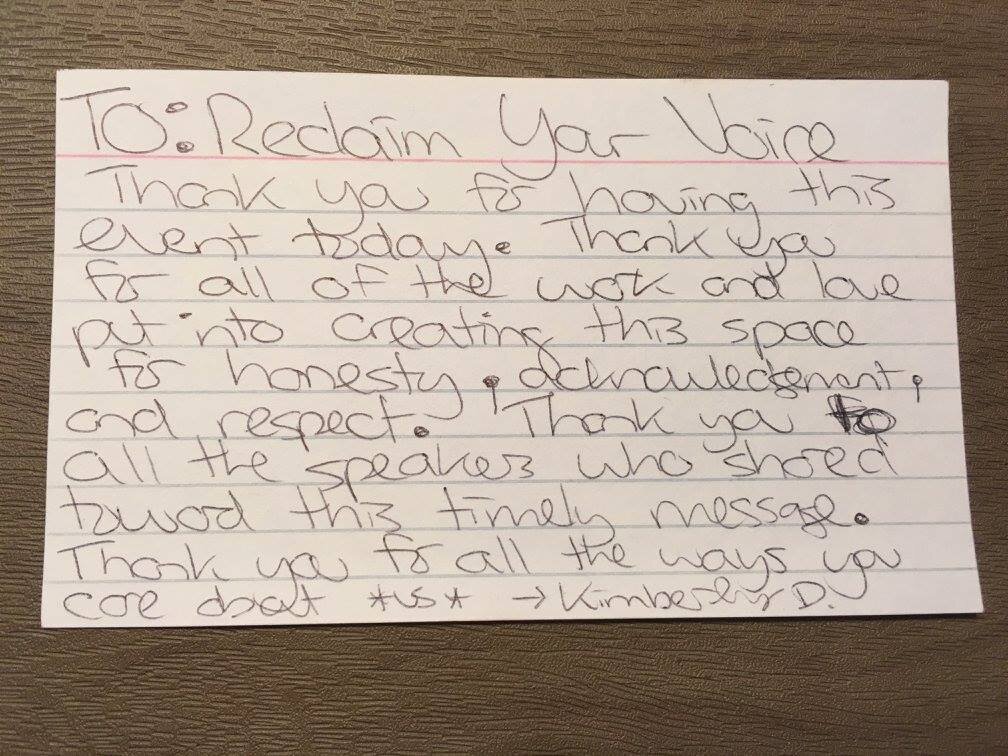 TO: Reclaim Your Voice
Thank you for having this
event today. Thank you
for all of the work and love
put into creating this space
for honesty, acknowledgement,
and respect. Thank you to
all the speakers who shared
toward this timely message.
Thank you for all the ways you
care about *us* → Kimberly D.